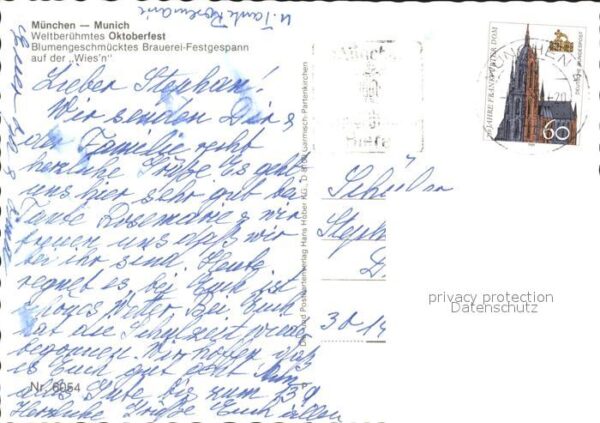 u. Tante Rosemarie
München — Munich
Weltberühmtes Oktoberfest
Blumengeschmücktes Brauerei-Festgespann
auf der „Wies'n"
Lieber Stephan!
Wir senden Dir &
der Familie recht
herzliche Grüße. Es geht
uns hier sehr gut bei
Tante Rosemarie & wir
freuen uns daß wir
bei ihr sind. Heute
regnet es, bei Euch ist
Wetter. Bei Euch
hat die Schulzeit wieder
begonnen. Wir hoffen daß
es Euch gut geht
alles Gute bis zum
Herzliche Grüße Euch allen
Nr. 6054
Postkartenverlag Hans Huber KG, Garmisch-Partenkirchen
München
Schüler
Steph
30-14
JAHRE FRANKFURTER DOM
DEUTSCHE BUNDESPOST
60
MÜNCHEN
privacy protection
Datenschutz